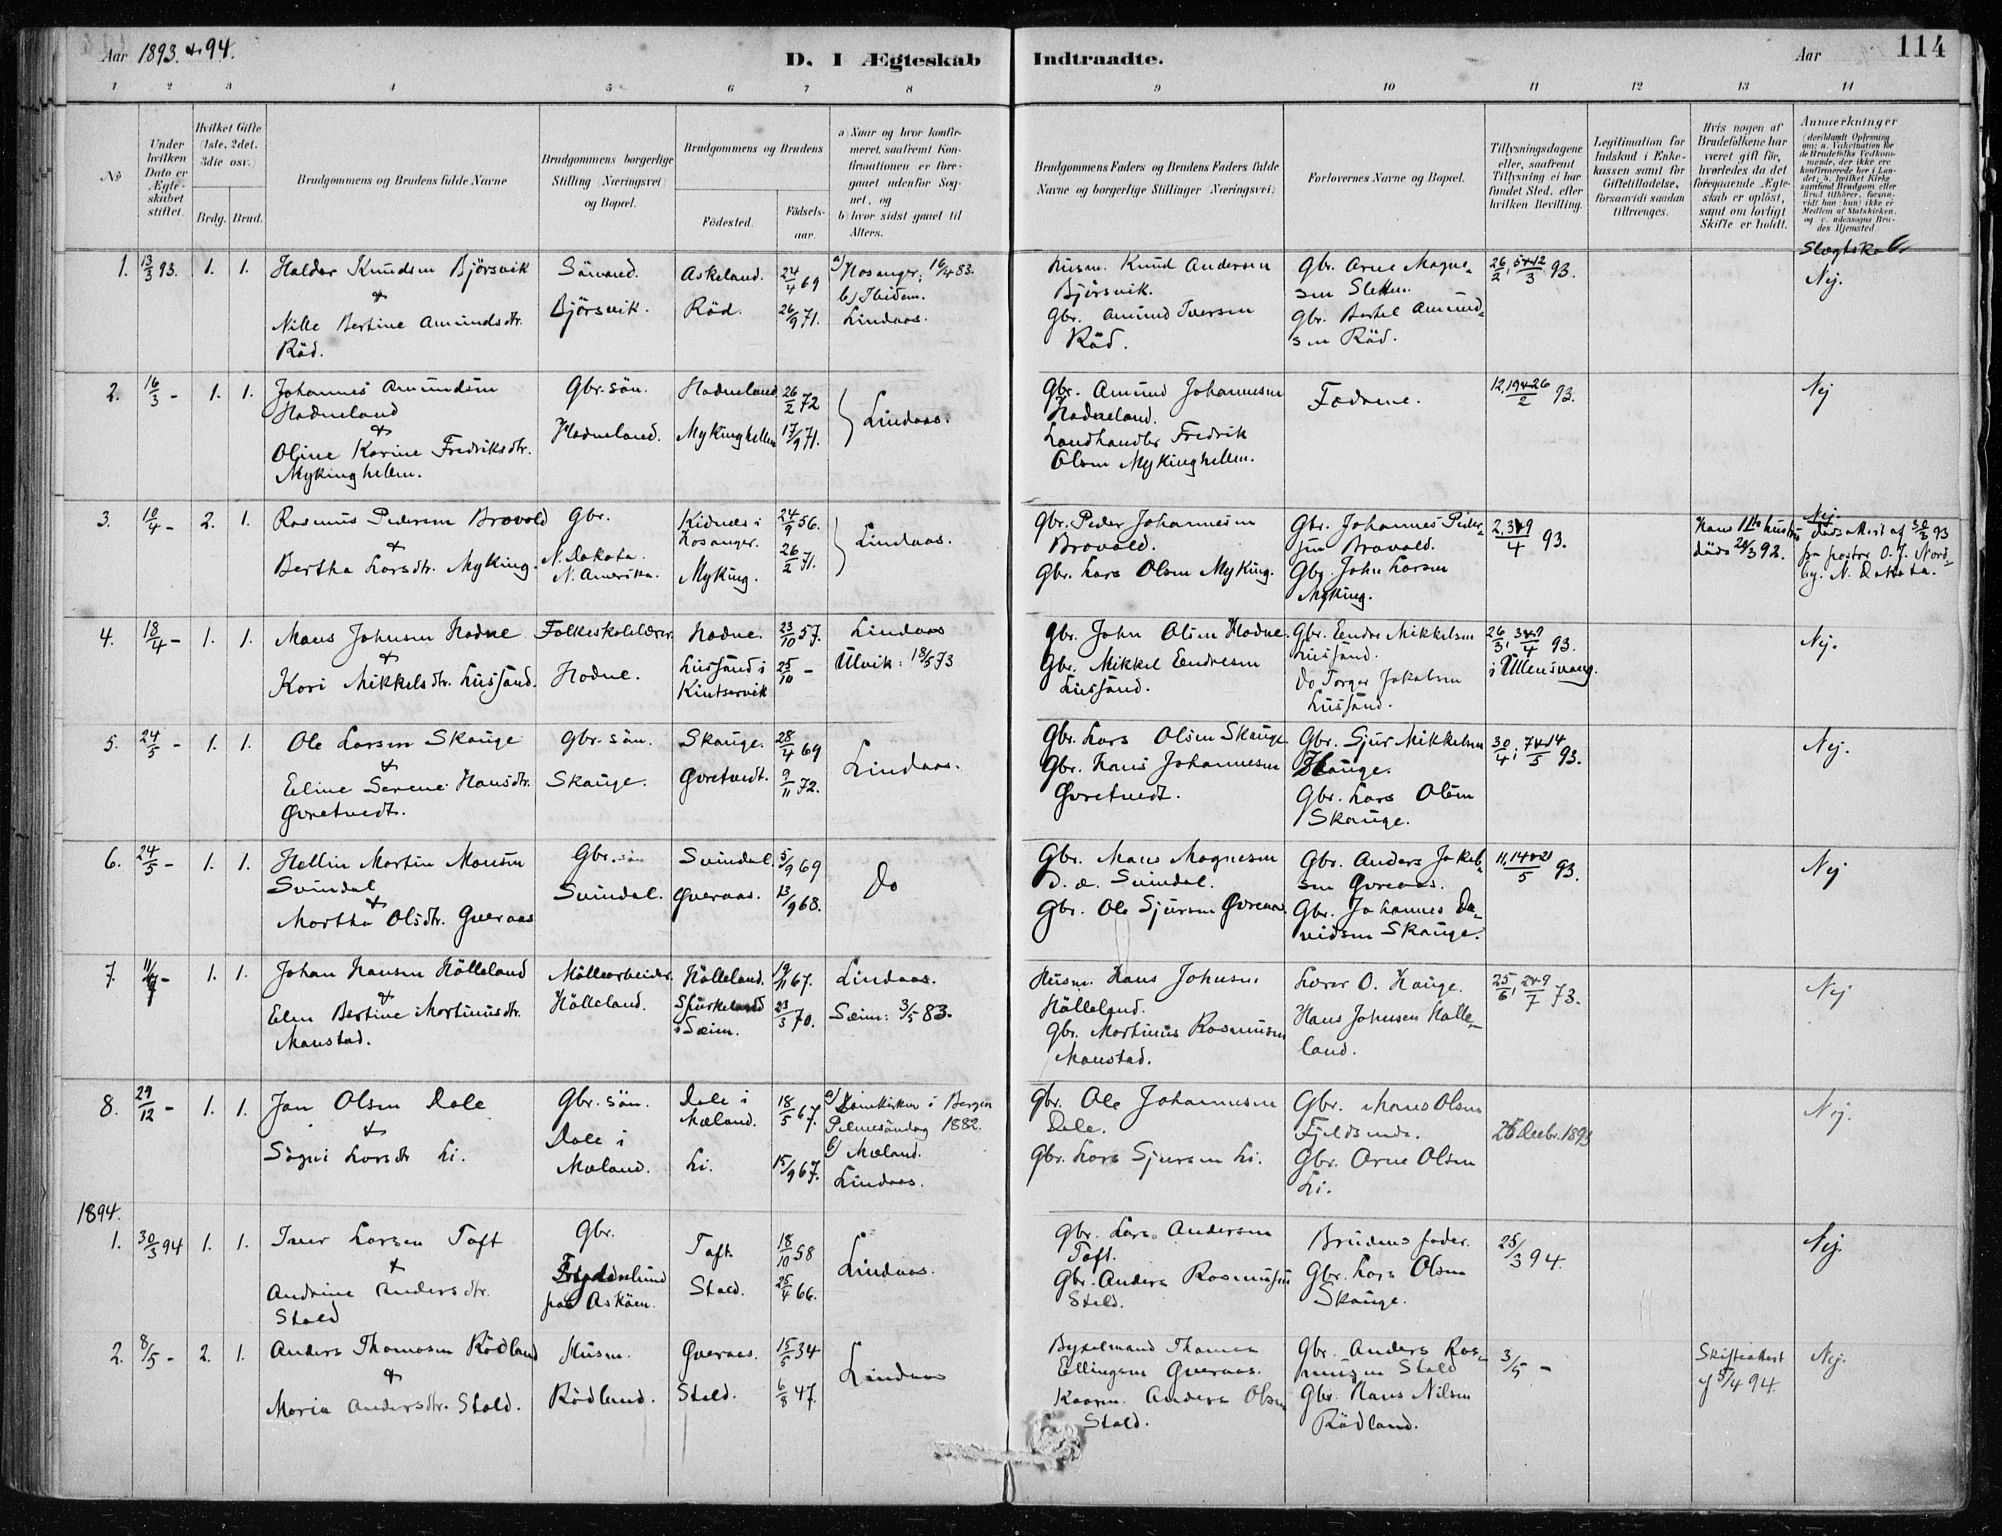 Aar 1893. & 94.
D. I Ægteskab
Indtraadte.
Aar
114
1 2 3 4 5 6 7 8
9 10 11 12 13 14
No
Under hvilken Dato er Ægteskabet stiftet.
Hvilket Gifte (1ste, 2det, 3die osv.)
Brdg. Brud.
Brudgommens og Brudens fulde Navne
Brudgommens borgerlige Stilling (Næringsvei) og Bopæl.
Brudgommens og Brudens
Fødested.
Fødselsaar.
a) Naar og hvor konfirmeret, saafremt Konfirmationen er foregaaet udenfor Sognet, og
b) hvor sidst gaaet til Alters.
Brudgommens Faders og Brudens Faders fulde Navne og borgerlige Stillinger (Næringsvei)
Forlovernes Navne og Bopæl.
Tillysningsdagene eller, saafremt Tillysning ei har fundet Sted, efter hvilken Bevilling.
Legitimation for Indskud i Enkekassen samt for Giftetilladelse, forsaavidt saadan tiltrænges.
Hvis nogen af Brudefolkene har været gift før, hvorledes da det foregaaende Ægteskab er opløst, samt om lovligt Skifte er holdt.
Anmærkninger
Slægtskab
1. 13/3 93. 1. 1.
Haldor Knudsen Björsvik
&
Nille Bertine Amundsdtr.
Röd.
Sömand.
Björsvik.
Askeland.
Röd.
24/4 69
26/9 71.
a) Hosanger, 16/4 83.
b) Ibidem.
Lindaas.
Husm. Knud Andersen
Björsvik.
Gbr. Amund Iversen
Röd.
Gbr. Arne Magne-
sen Sletten.
Gbr. Bertel Amund-
sen Röd.
26/2, 5 & 12/3 93.
Nej.
2. 16/3 - 1. 1.
Johannes Amundsen
Hodneland
&
Oline Karine Fredriksdtr.
Mykinghellen.
Gbr. sön.
Hodneland.
Hodneland
Mykinghellen
26/2 72
17/9 71.
Lindaas.
Gbr. Amund Johannesen
Hodneland.
Landhandler Fredrik
Olsen Mykinghellen.
Fædrene.
12, 19 & 26/2 93.
Nej
3. 10/4 - 2. 1.
Rasmus Pedersen Brovold
&
Bertha Larsdtr. Myking.
Gbr.
N. Dakota.
N. Amerika.
Kidnes i
Hosanger.
Myking.
24/9 56.
26/2 71.
Lindaas.
Gbr. Peder Johannesen
Brovold.
Gbr. Lars Olsen Myking.
Gbr. Johannes Peder-
sen Brovold.
Gbr. John Larsen
Myking.
2, 3 & 9/4 93.
Hans 1ste hustru
döde 24/3 92.
Nej
Dödsattest af 30/3 93
fra pastor O. J. Nord-
by. N. Dakota.
4. 18/4 - 1. 1.
Mons Johnsen Hodne
&
Kari Mikkelsdtr. Lussand.
Folkeskolelærer.
Hodne.
Hodne.
Lussand i
Kintservik
23/10 57.
25/10 -
Lindaas
Ulvik: 18/5 73
Gbr. John Olsen Hodne.
Gbr. Mikkel Endresen
Lussand.
Gbr. Endre Mikkelsen
Lussand.
Do Torger Jakobsen
Lussand.
26/3, 3 & 9/4 93.
i Ullensvang.
Nej.
5. 24/5 - 1. 1.
Ole Larsen Skauge
&
Eline Serene Hansdtr.
Øvretvedt.
Gbr. sön.
Skauge.
Skauge.
Øvretvedt.
28/4 69
9/11 72.
Lindaas.
Gbr. Lars Olsen Skauge
Gbr. Hans Johannesen
Øvretvedt.
Gbr. Sjur Mikkelsen
Hauge.
Gbr. Lars Olsen
Skauge.
30/4, 7 & 14/5 93.
Nej.
6. 24/5 - 1. 1.
Hellin Martin Monsen
Svindal
&
Martha Olsdtr. Øveraas
Gbr. sön
Svindal.
Svindal.
Øveraas.
5/9 69
13/9 68.
Do
Gbr. Mons Magnesen
Svindal.
Gbr. Ole Sjursen Øvreaas.
Gbr. Anders Jakob-
sen Øvreaas.
Gbr. Johannes Da-
vidsen Skauge.
11, 14 & 21/5 93.
Nej
7. 1. 1.
Johan Hansen Hölleland
&
Elen Bertine Martinusdtr.
Monstad.
Möllearbeider.
Hölleland.
Hölleland.
Spurkeland
i Sæim.
19/11 67.
23/3 70.
Lindaas.
Sæim: 3/5 83.
Husm. Hans Johnsen
Hölleland.
Gbr. Martinus Rasmusen
Monstad.
Lærer O. Hauge.
Hans Johnsen Hölle-
land.
25/6, 2 & 9/7 73.
Nej
8. 29/12 - 1. 1.
Jon Olsen Dale
&
Sögni Larsdtr Li.
Gbr. sön.
Dale i
Mæland.
Dale i
Mæland.
Li.
18/5 67.
15/9 67.
a) Domkirken i Bergen
Palmesöndag 1882.
b) Mæland.
Lindaas.
Gbr. Ole Johannesen
Dale.
Gbr. Lars Sjursen Li.
Gbr. Mons Olsen
Fjeldsende.
Gbr. Arne Olsen
Li.
26 Decbr. 1893
Nej.
1894.
1. 30/3 94 1. 1.
Iver Larsen Toft
&
Andrine Andersdtr.
Stald
Gbr.
paa Asköen.
Toft.
Stald.
18/10 58
25/4 66.
Lindaas.
Gbr. Lars Andersen
Toft.
Gbr. Anders Rasmusen
Stald.
Brudens fader.
Gbr. Lars Olsen
Skauge.
25/3 94.
Nej.
2. 8/5 - 2. 1.
Anders Thomasen Rödland
&
Maria Andersdtr. Stald.
Husm.
Rödland.
Øveraas.
Stald.
15/5 34
6/8 47.
Lindaas
Bygselmand Thomas
Ellingsen Øveraas.
Kaarm. Anders Olsen
Stald.
Gbr. Anders Ras-
musen Stald
Gbr. Hans Nilsen
Rödland.
3/5 -
Skifteattest
af 5/4 94.
Nej.